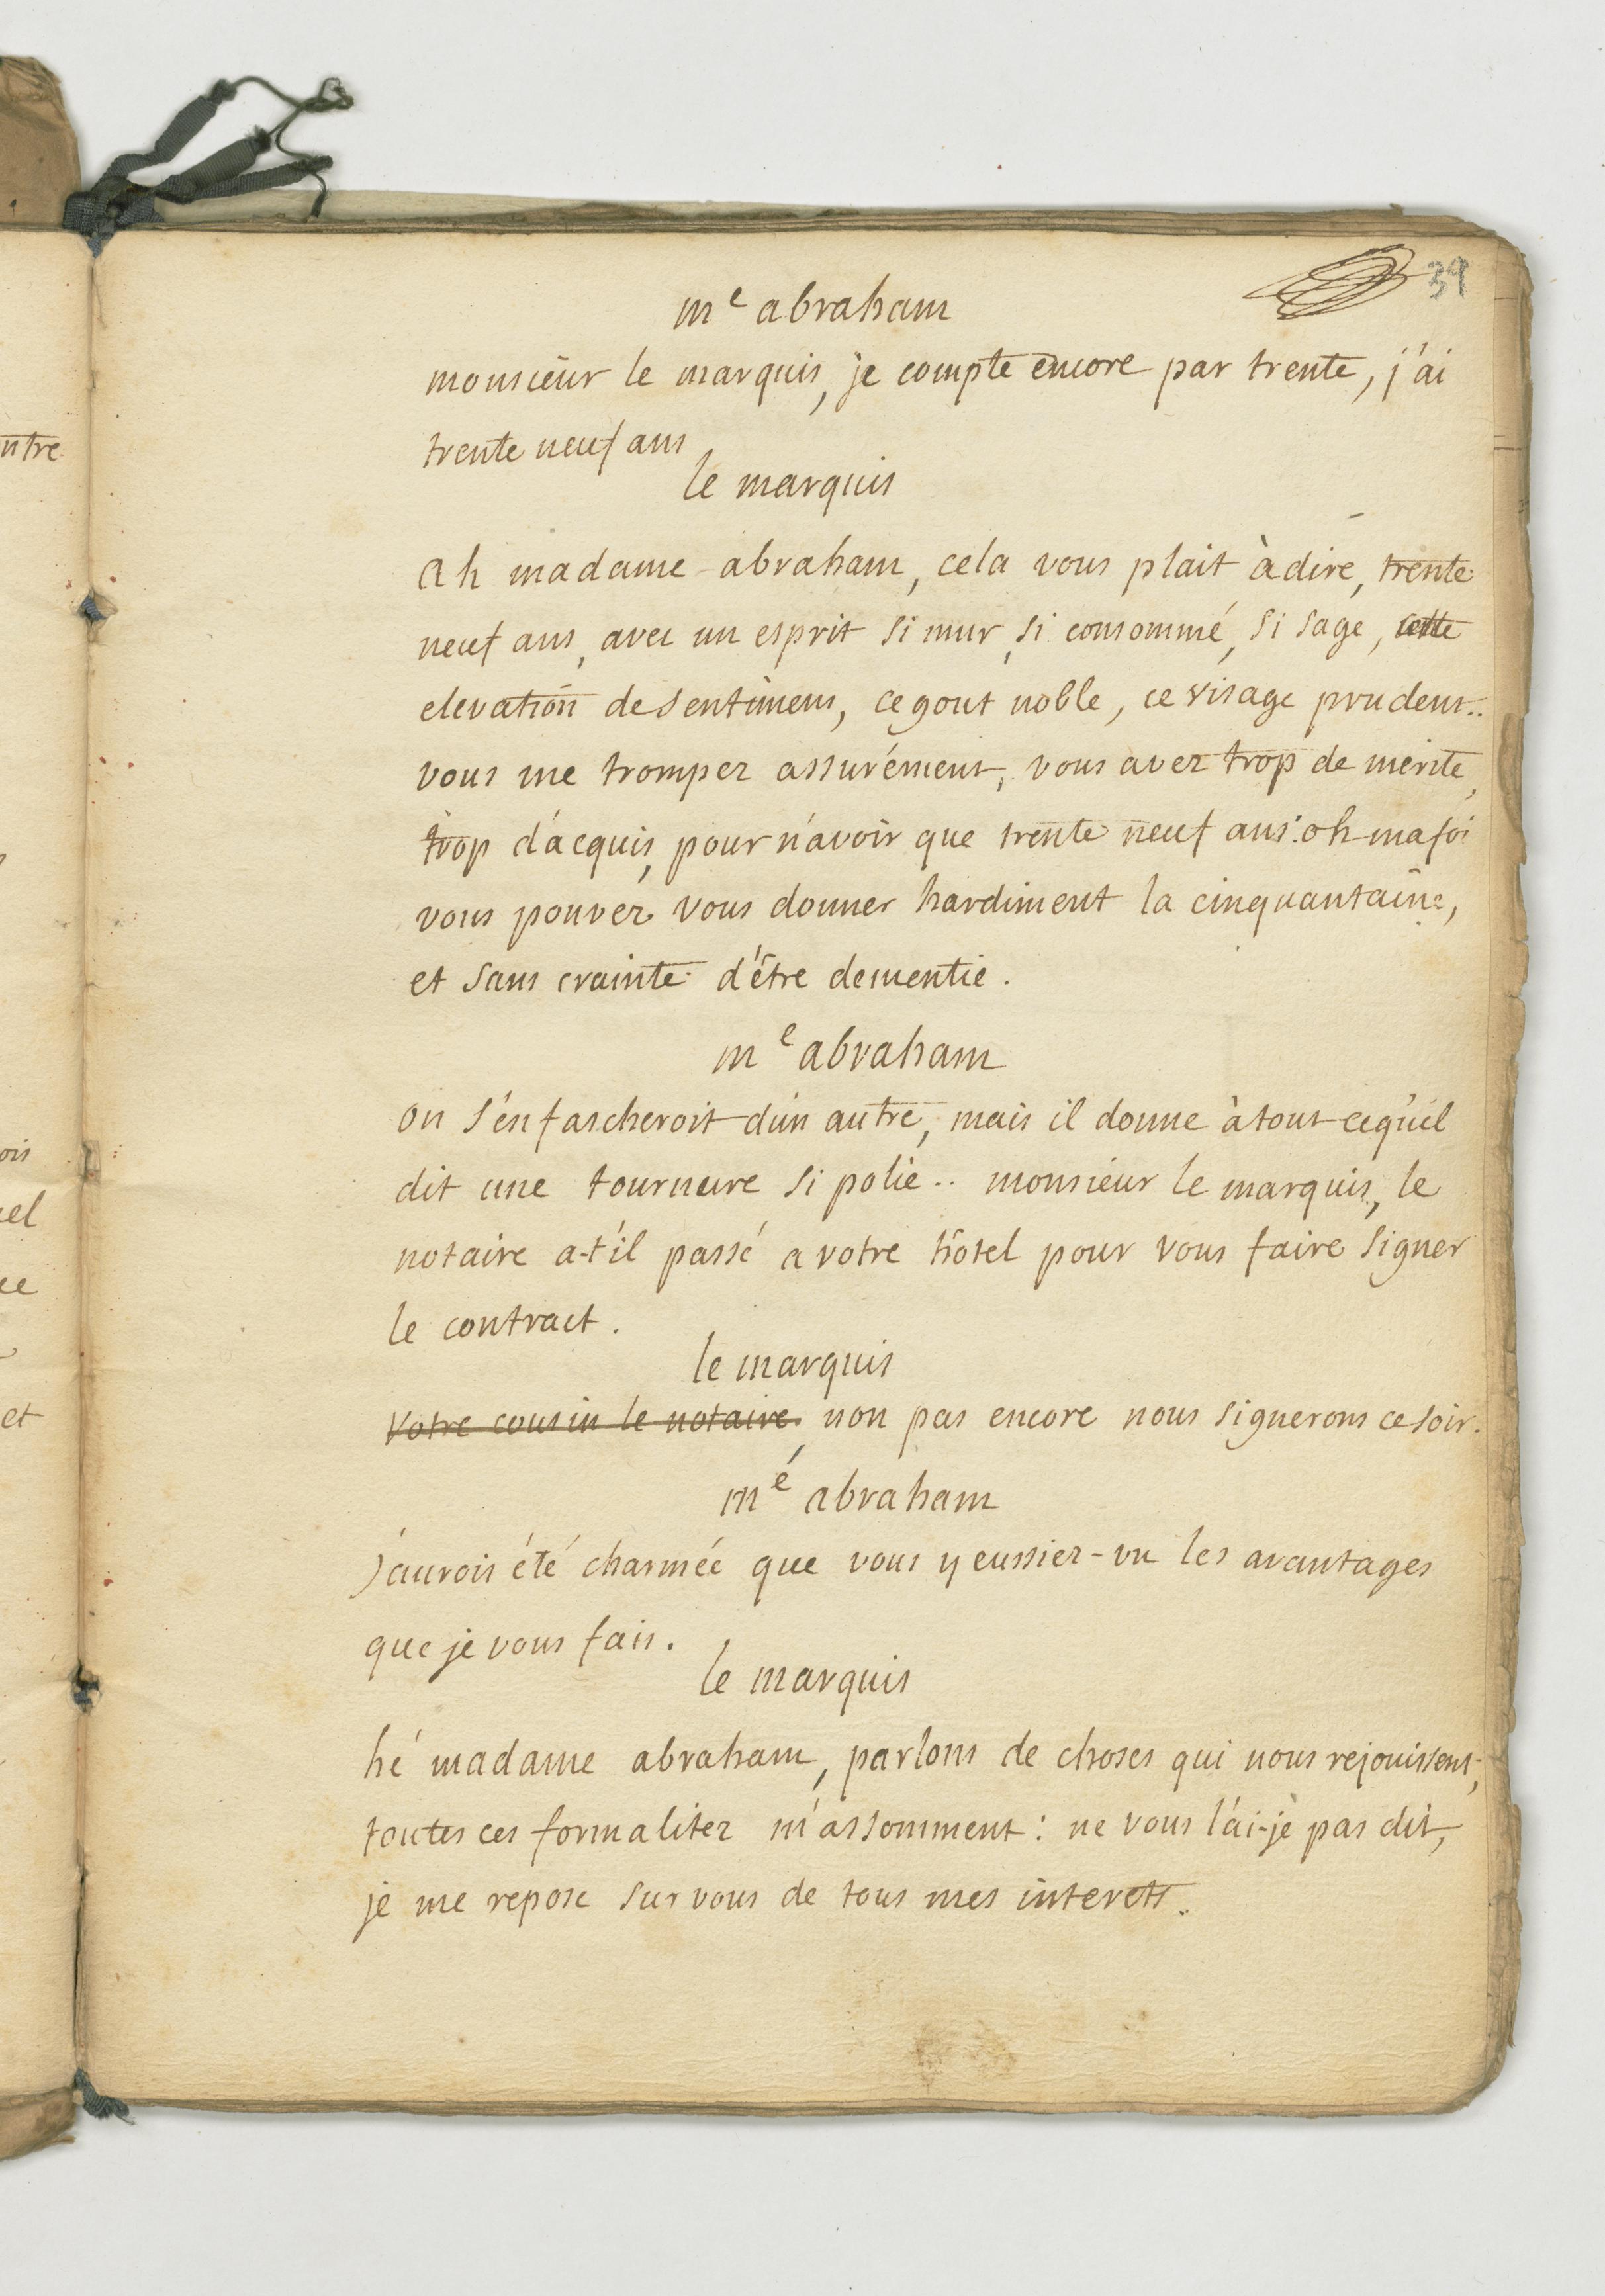 39
me abraham
monsieur le marquis, je compte encore par trente, j'ai
trente neuf ans
le marquis
ah madame abraham, cela vous plait à dire, trente
neuf ans, avec un esprit si mur, si consommé, si sage, cette
elevation de sentimens, ce gout noble, ce visage prudent..
vous me trompez assurément, vous avez trop de merite,
trop d'acquis, pour n'avoir que trente neuf ans: oh ma foi
vous pouvez vous donner hardiment la cinquantaine,
et sans crainte d'être dementie.
me abraham
on s'en fascheroit d'un autre, mais il donne à tout ce qu'il
dit une tournure si polie.. monsieur le marquis, le
notaire a-t'il passé a votre hôtel pour vous faire signer
le contract.
le marquis
votre cousin le notaire, non pas encore nous signerons ce soir.
mé abraham
j'aurois été charmée que vous y eussiez-vu les avantages
que je vous fais.
le marquis
hé madame abraham, parlons de choses qui nous rejouissent,
toutes ces formalitez m'assomment: ne vous l'ai-je pas dit,
je me repose sur vous de tous mes interets..
ntre
ois
et